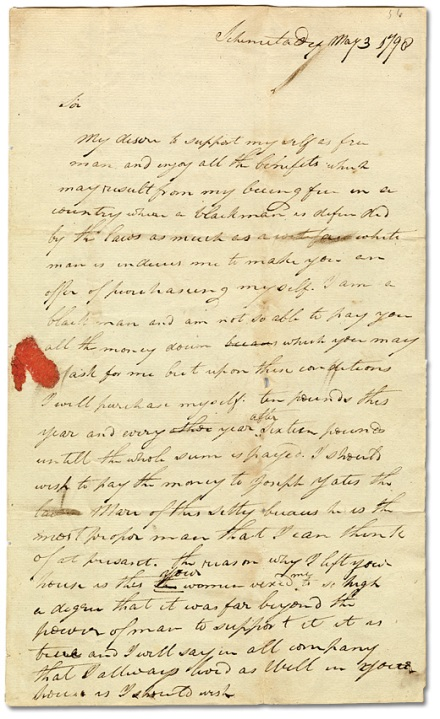 Schenectady May 3 1798
Sir
My desire to support myself as free
man and enjoy all the benefits which
may result from my being free in a
country where a blackman is defended
by the laws as much as a white
man is induces me to make you an
offer of purchasing myself. I am a
black man and am not so able to pay you
all the money down which you may
ask for me but upon these conditions
I will purchase myself. ten pounds this
year and every year after sixteen pounds
untill the whole sum is payed. I should
wish to pay the money to Joseph Yates the
Mare of this Sitty becaus he is the
most propor man that I can think
of at present. the reason why I left your
house is this your women vexed me to so high
a degree that it was far beyond the
power of man to support it it is
true and I will say in all company
that I allways lived as well in your
house as I should wish